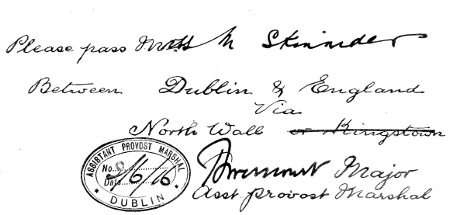 Please pass Miss M Skinnider
Between Dublin & England
Via
North Wall or Kingstown
Major
Asst Provost Marshal
ASSISTANT PROVOST MARSHAL
No.
Date 2/6/16
DUBLIN